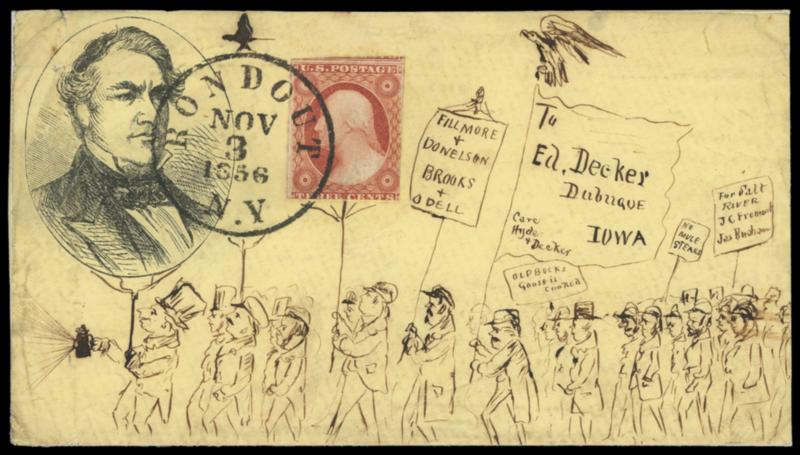 RONDOUT
NOV
3
1856
N.Y
U.S. POSTAGE
THREE CENTS
FILLMORE
+
DONELSON
BROOKS
+
ODELL
To
Ed, Decker
Dubuque
IOWA
Care
Hyde
+ Decker
OLD BUCKS
Goose is
COOKED
NO
MULE
STEAKS
For Salt
RIVER
J C Fremont
Jas Bucham